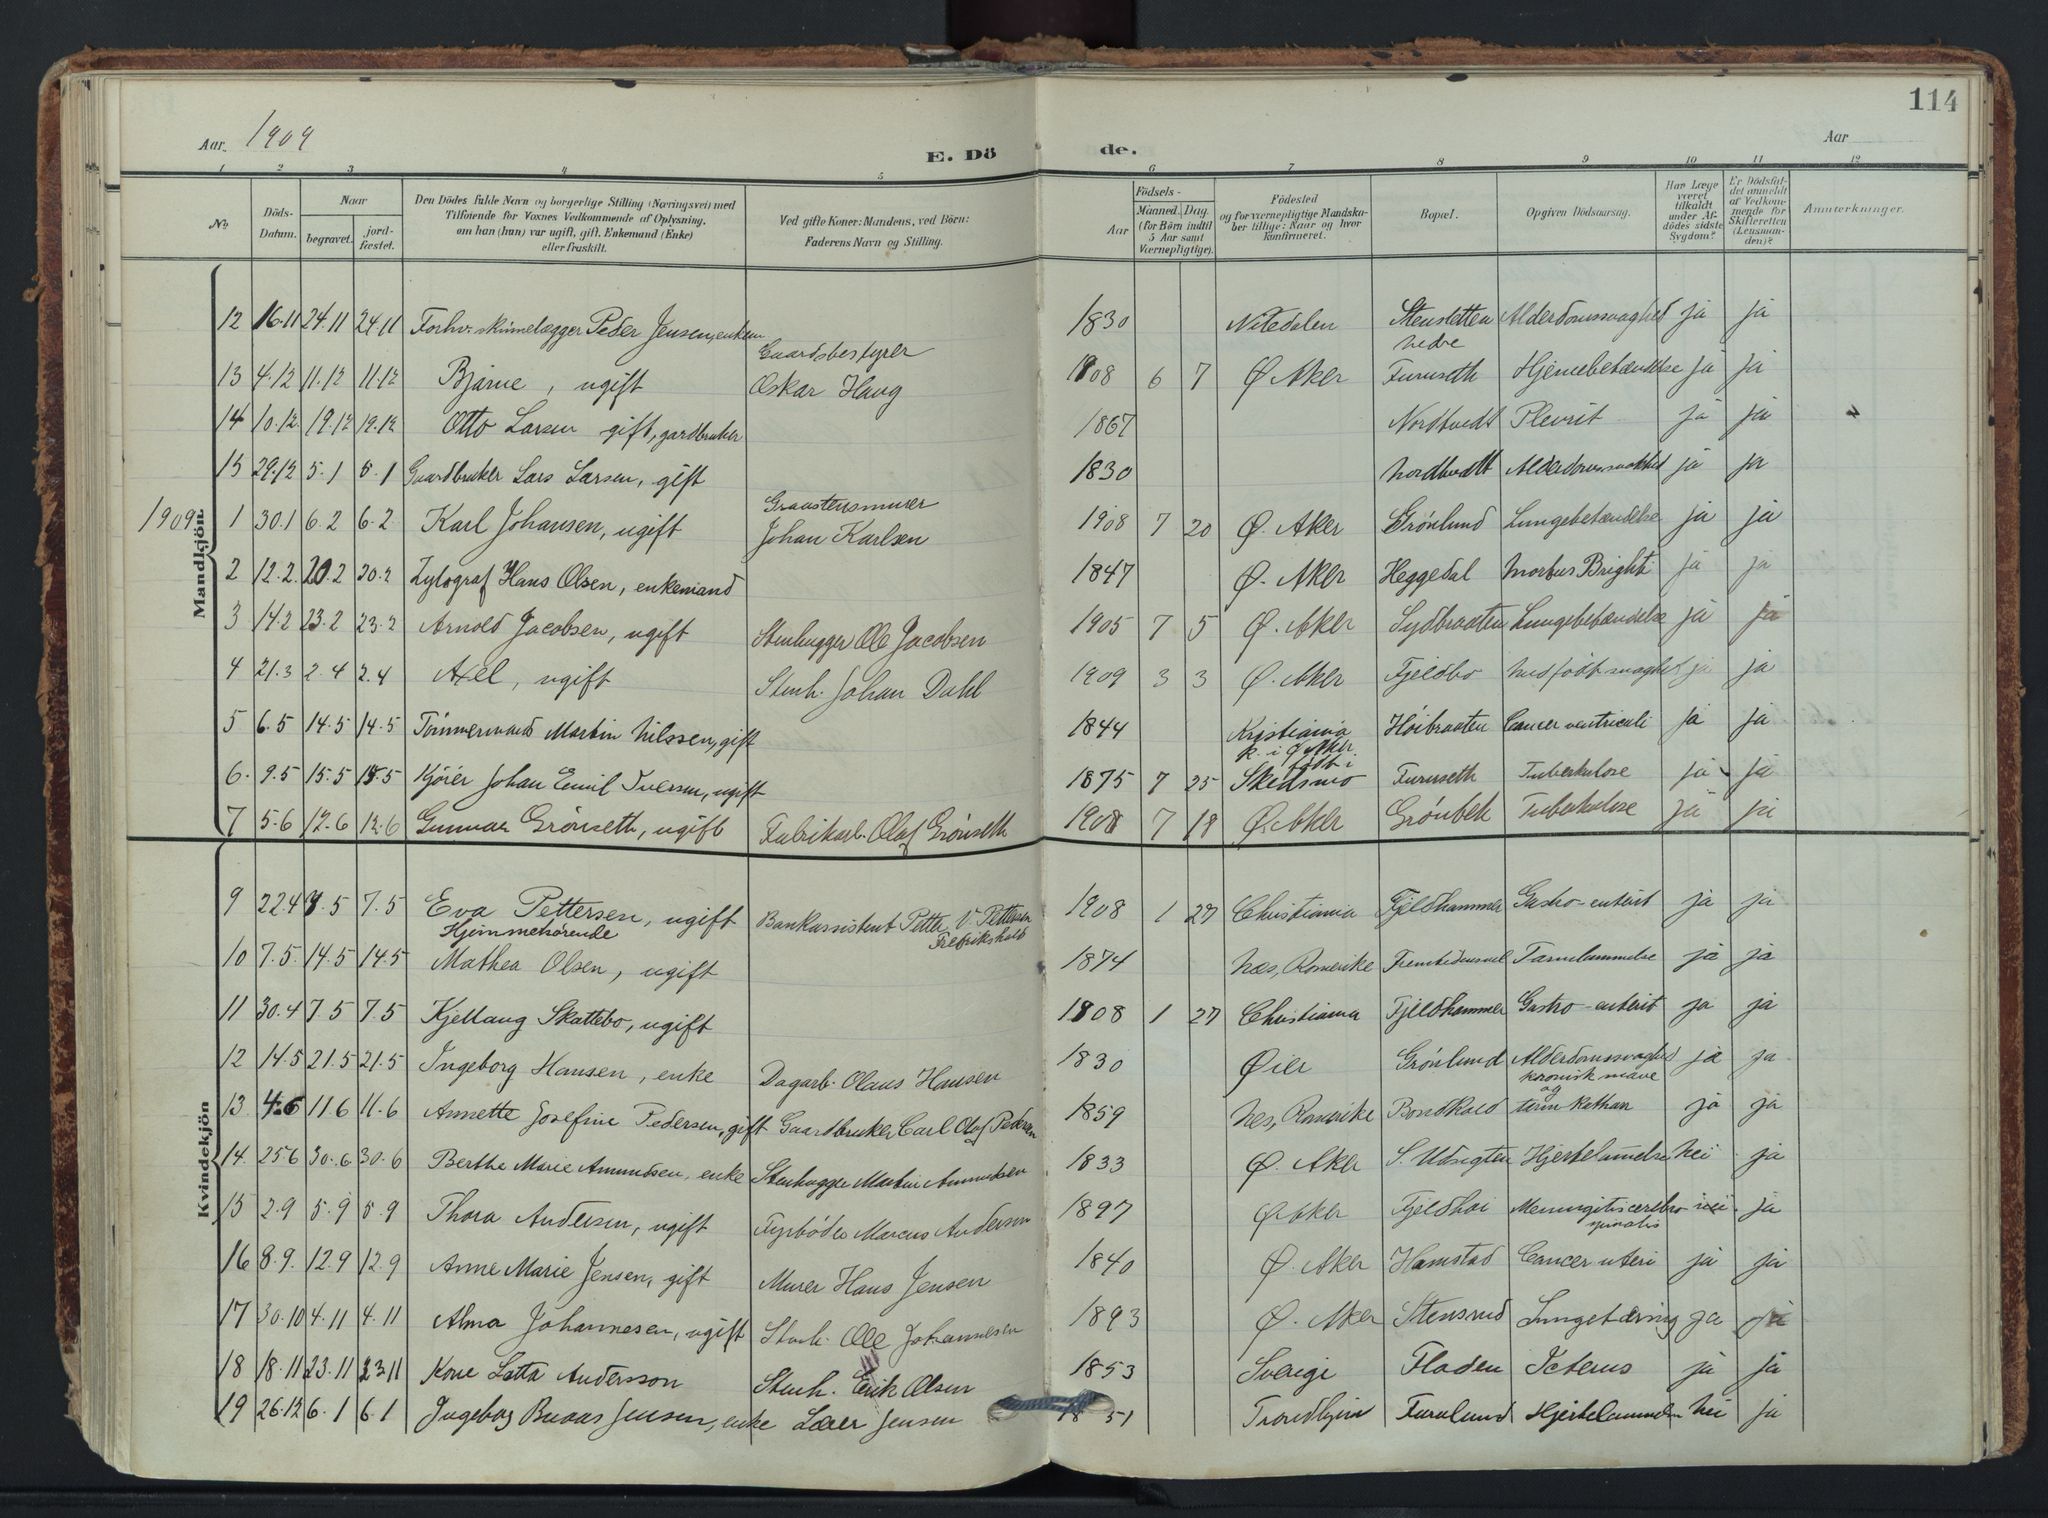 114
Aar 1909
E. Dö de.
Aar
1 2 3 4 5 6 7 8 9 10 11 12
No. Döds-Datum. Naar begravet. jordfæstet. Den Dödes fulde Navn og borgerlige Stilling (Næringsvei) med Tilföiende for Voxnes Vedkommende af Oplysning, om han (hun) var ugift, gift, Enkemand (Enke) eller fraskilt. Ved gifte Koner: Mandens, ved Börn: Faderens Navn og Stilling. Aar Födsels- Maaned. Dag (for Börn indtil 5 Aar samt Værnepligtige). Födested og for værnepligtige Mandskaber tillige: Naar og hvor konfirmeret. Bopæl. Opgiven Dödsaarsag. Har Læge været tilkaldt under Afdödes sidste Sygdom? Er Dödsfaldet anmeldt af Vedkommende for Skifteretten (Lensmanden)? Anmerkninger.
Mandkjön
12 16.11 24.11 24.11 Forhv. skinnelægger Peder Jensen, enkem 1830 Nitedalen Stensletten nedre Alderdomssvaghed ja ja
13 4.12 11.12 11.12 Bjarne, ugift Gaardsbestyrer Oskar Haug 1908 6 7 Ø Aker Furuseth Hjernebetændelse ja ja
14 10.12 19.12 19.12 Otto Larsen gift, gardbruker 1867 Nordtvedt Plevrit ja ja
15 29.12 5.1 5.1 Gaardbruker Lars Larsen, gift 1830 Nordtvedt Alderdomssvakhed ja ja
1909 1 30.1 6.2 6.2 Karl Johansen, ugift Graastensmurer Johan Karlsen 1908 7 20 Ø. Aker Grönlund Lungebetændelse ja ja
2 12.2 20.2 20.2 Zylograf Hans Olsen, enkemand 1847 Ø. Aker Heggedal Morbus Brighti ja ja
3 14.2 23.2 23.2 Arnold Jacobsen, ugift Stenhugger Ole Jacobsen 1905 7 5 Ø. Aker Sydbraaten Lungebetændelse ja ja
4 21.3 2.4 2.4 Axel, ugift Stenh. Johan Dahl 1909 3 3 Ø. Aker Fjeldbo Medfødt svaghed ja ja
5 6.5 14.5 14.5 Tömmermand Martin Nilssen, gift 1844 Kristiania Höibraaten Cancer ventriculi ja ja
6. 9.5 15.5 15.5 Kjörer Johan Emil Iversen, ugift 1875 7 25 k. i Ø Aker. född i Skedsmo Furuseth Tuberkulose ja ja
7 5.6 12.6 12.6 Gunnar Grönseth, ugift Fabrikarb. Olaf Grönseth 1908 7 18 Ø. Aker Grönbek Tuberkulose ja ja
Kvindekjön
9 22.4 7.5 7.5 Eva Pettersen, ugift Bankassistent Petter V. Pettersen Fredrikshald 1908 1 27 Christiania Fjeldhammer Gastro-enterit ja ja
10 7.5. 14.5 14.5 Hjemmehörende Mathea Olsen, ugift 1874 Næs, Romerike Tarmlammelse ja ja
11 30.4 7.5 7.5 Kjellaug Skattebo, ugift 1908 1 27 Christiania Fjeldhammer Gastro-enterit ja ja
12 14.5 21.5 21.5 Ingeborg Hansen, enke Dagarb. Olaus Hansen 1830 Øier Grönlund Alderdomssvaghed ja ja
13 4.6 11.6 11.6 Annette Josefine Pedersen, gift Gaardbruker Carl Olaf Pedersen 1859 Nes, Romerike kronisk mave og ja ja
14. 25.6 30.6 30.6 Berthe Marie Amundsen, enke Stenhugger Martin Amundsen 1833 Ø. Aker S. Udsigten Hjertelammelse Nei ja
15 2.9 5.9 5.9 Thora Andersen, ugift Fyrböder Marcus Andersen 1897 Ø Aker Fjeldhoi Meningitis cerebro spinalis nei ja
16 8.9. 12.9 12.9 Anne Marie Jensen, gift Murer Hans Jensen 1840 Ø. Aker Hamstad Cancer uteri ja ja
17 30.10 4.11 4.11 Alma Johannesen, ugift Stenh. Ole Johannesen 1893 Ø. Aker Stensrud Lungetæring ja ja
18 18.11 23.11 23.11 Kone Lotta Andersson Stenh. Erik Olsen 1853 Sverige Fladen Icterus ja ja
19 26.12 6.1 6.1 Ingeborg Buaas Jensen, enke Lærer Jensen 1851 Trondhjem Furulund Hjertelammelse Nei ja